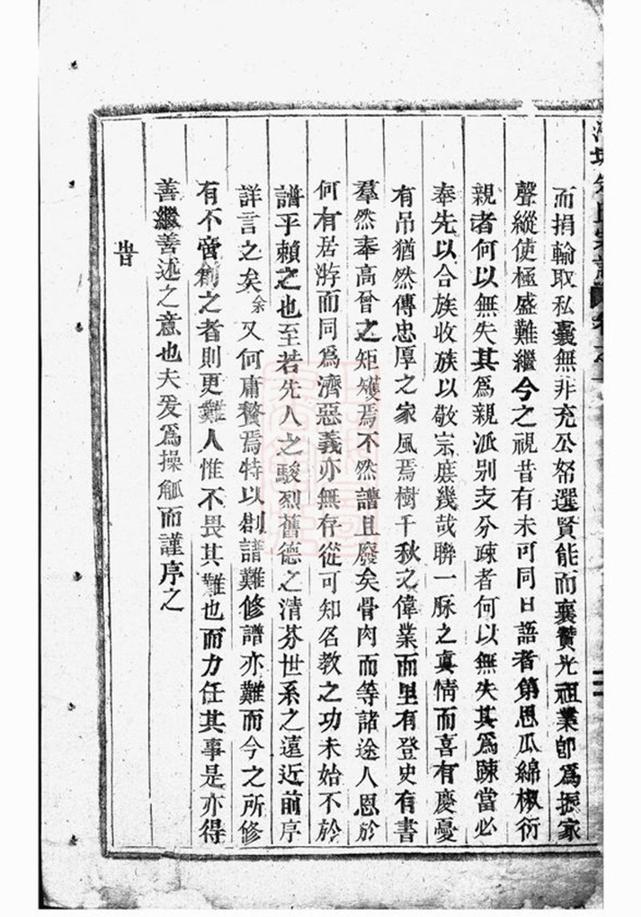 而捐輸取私囊無非充公帑選賢能而襄贊光祖業卽爲振家
聲縱使極盛難繼今之視昔有未可同日語者第思瓜綿椒衍
親者何以無失其爲親派别支分疎者何以無失其爲踈當必
奉先以合族收族以敬宗庻幾哉聯一脉之眞情而喜有慶憂
有吊猶然傳忠厚之家風焉樹千秋之偉業而里有登史有書
羣然奉高曾之矩矱焉不然譜且廢矣骨肉而等諸途人恩於
何有居游而同爲濟惡義亦無存從可知名教之功未始不於
譜乎賴之也至若先人之駿烈舊德之清芬世系之遠近前序
詳言之矣余又何庸贅焉特以創譜難修譜亦難而今之所修
有不啻創之者則更難人惟不畏其難也而力任其事是亦得
善繼善述之意也夫爰爲操觚而謹序之
旹